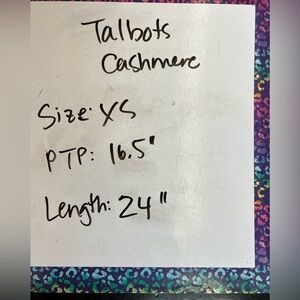 Talbots
Cashmere
Size: XS
PTP: 16.5"
Length: 24"